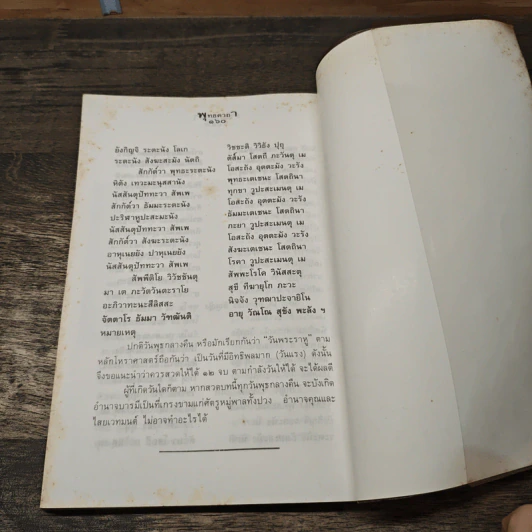 พุทธคาถา
๑๖๐
ยังกิญจิ ระตะนัง โลเก วิชชะติ วิวิธัง ปุถุ
ระตะนัง สังฆะสะมัง นัตถิ ตัส๎มา โสตถี ภะวันตุ เม
สักกัต๎วา พุทธะระตะนัง โอสะถัง อุตตะมัง วะรัง
หิตัง เทวะมะนุสสานัง พุทธะเตเชนะ โสตถินา
นัสสันตุปัททะวา สัพเพ ทุกขา วูปะสะเมนตุ เม
สักกัต๎วา ธัมมะระตะนัง โอสะถัง อุตตะมัง วะรัง
ปะริฬาหูปะสะมะนัง ธัมมะเตเชนะ โสตถินา
นัสสันตุปัททะวา สัพเพ ภะยา วูปะสะเมนตุ เม
สักกัต๎วา สังฆะระตะนัง โอสะถัง อุตตะมัง วะรัง
อาหุเนยยัง ปาหุเนยยัง สังฆะเตเชนะ โสตถินา
นัสสันตุปัททะวา สัพเพ โรคา วูปะสะเมนตุ เม
สัพพีติโย วิวัชชันตุ สัพพะโรโค วินัสสะตุ
มา เต ภะวัตวันตะราโย สุขี ทีฆายุโก ภะวะ
อะภิวาทะนะสีลิสสะ นิจจัง วุฑฒาปะจายิโน
จัตตาโร ธัมมา วัฑฒันติ อายุ วัณโณ สุขัง พะลัง ฯ
หมายเหตุ
ปกติวันพุธกลางคืน หรือมักเรียกกันว่า "วันพระราหู" ตาม
หลักโหราศาสตร์ถือกันว่า เป็นวันที่มีอิทธิพลมาก (วันแรง) ดังนั้น
จึงขอแนะนำว่าควรสวดให้ได้ ๑๒ จบ ตามกำลังวันให้ได้ จะได้ผลดี
ผู้ที่เกิดวันใดก็ตาม หากสวดบทนี้ทุกวันพุธกลางคืน จะบังเกิด
อำนาจบารมีเป็นที่เกรงขามแก่ศัตรูหมู่พาลทั้งปวง อำนาจคุณและ
ไสยเวทมนต์ ไม่อาจทำอะไรได้